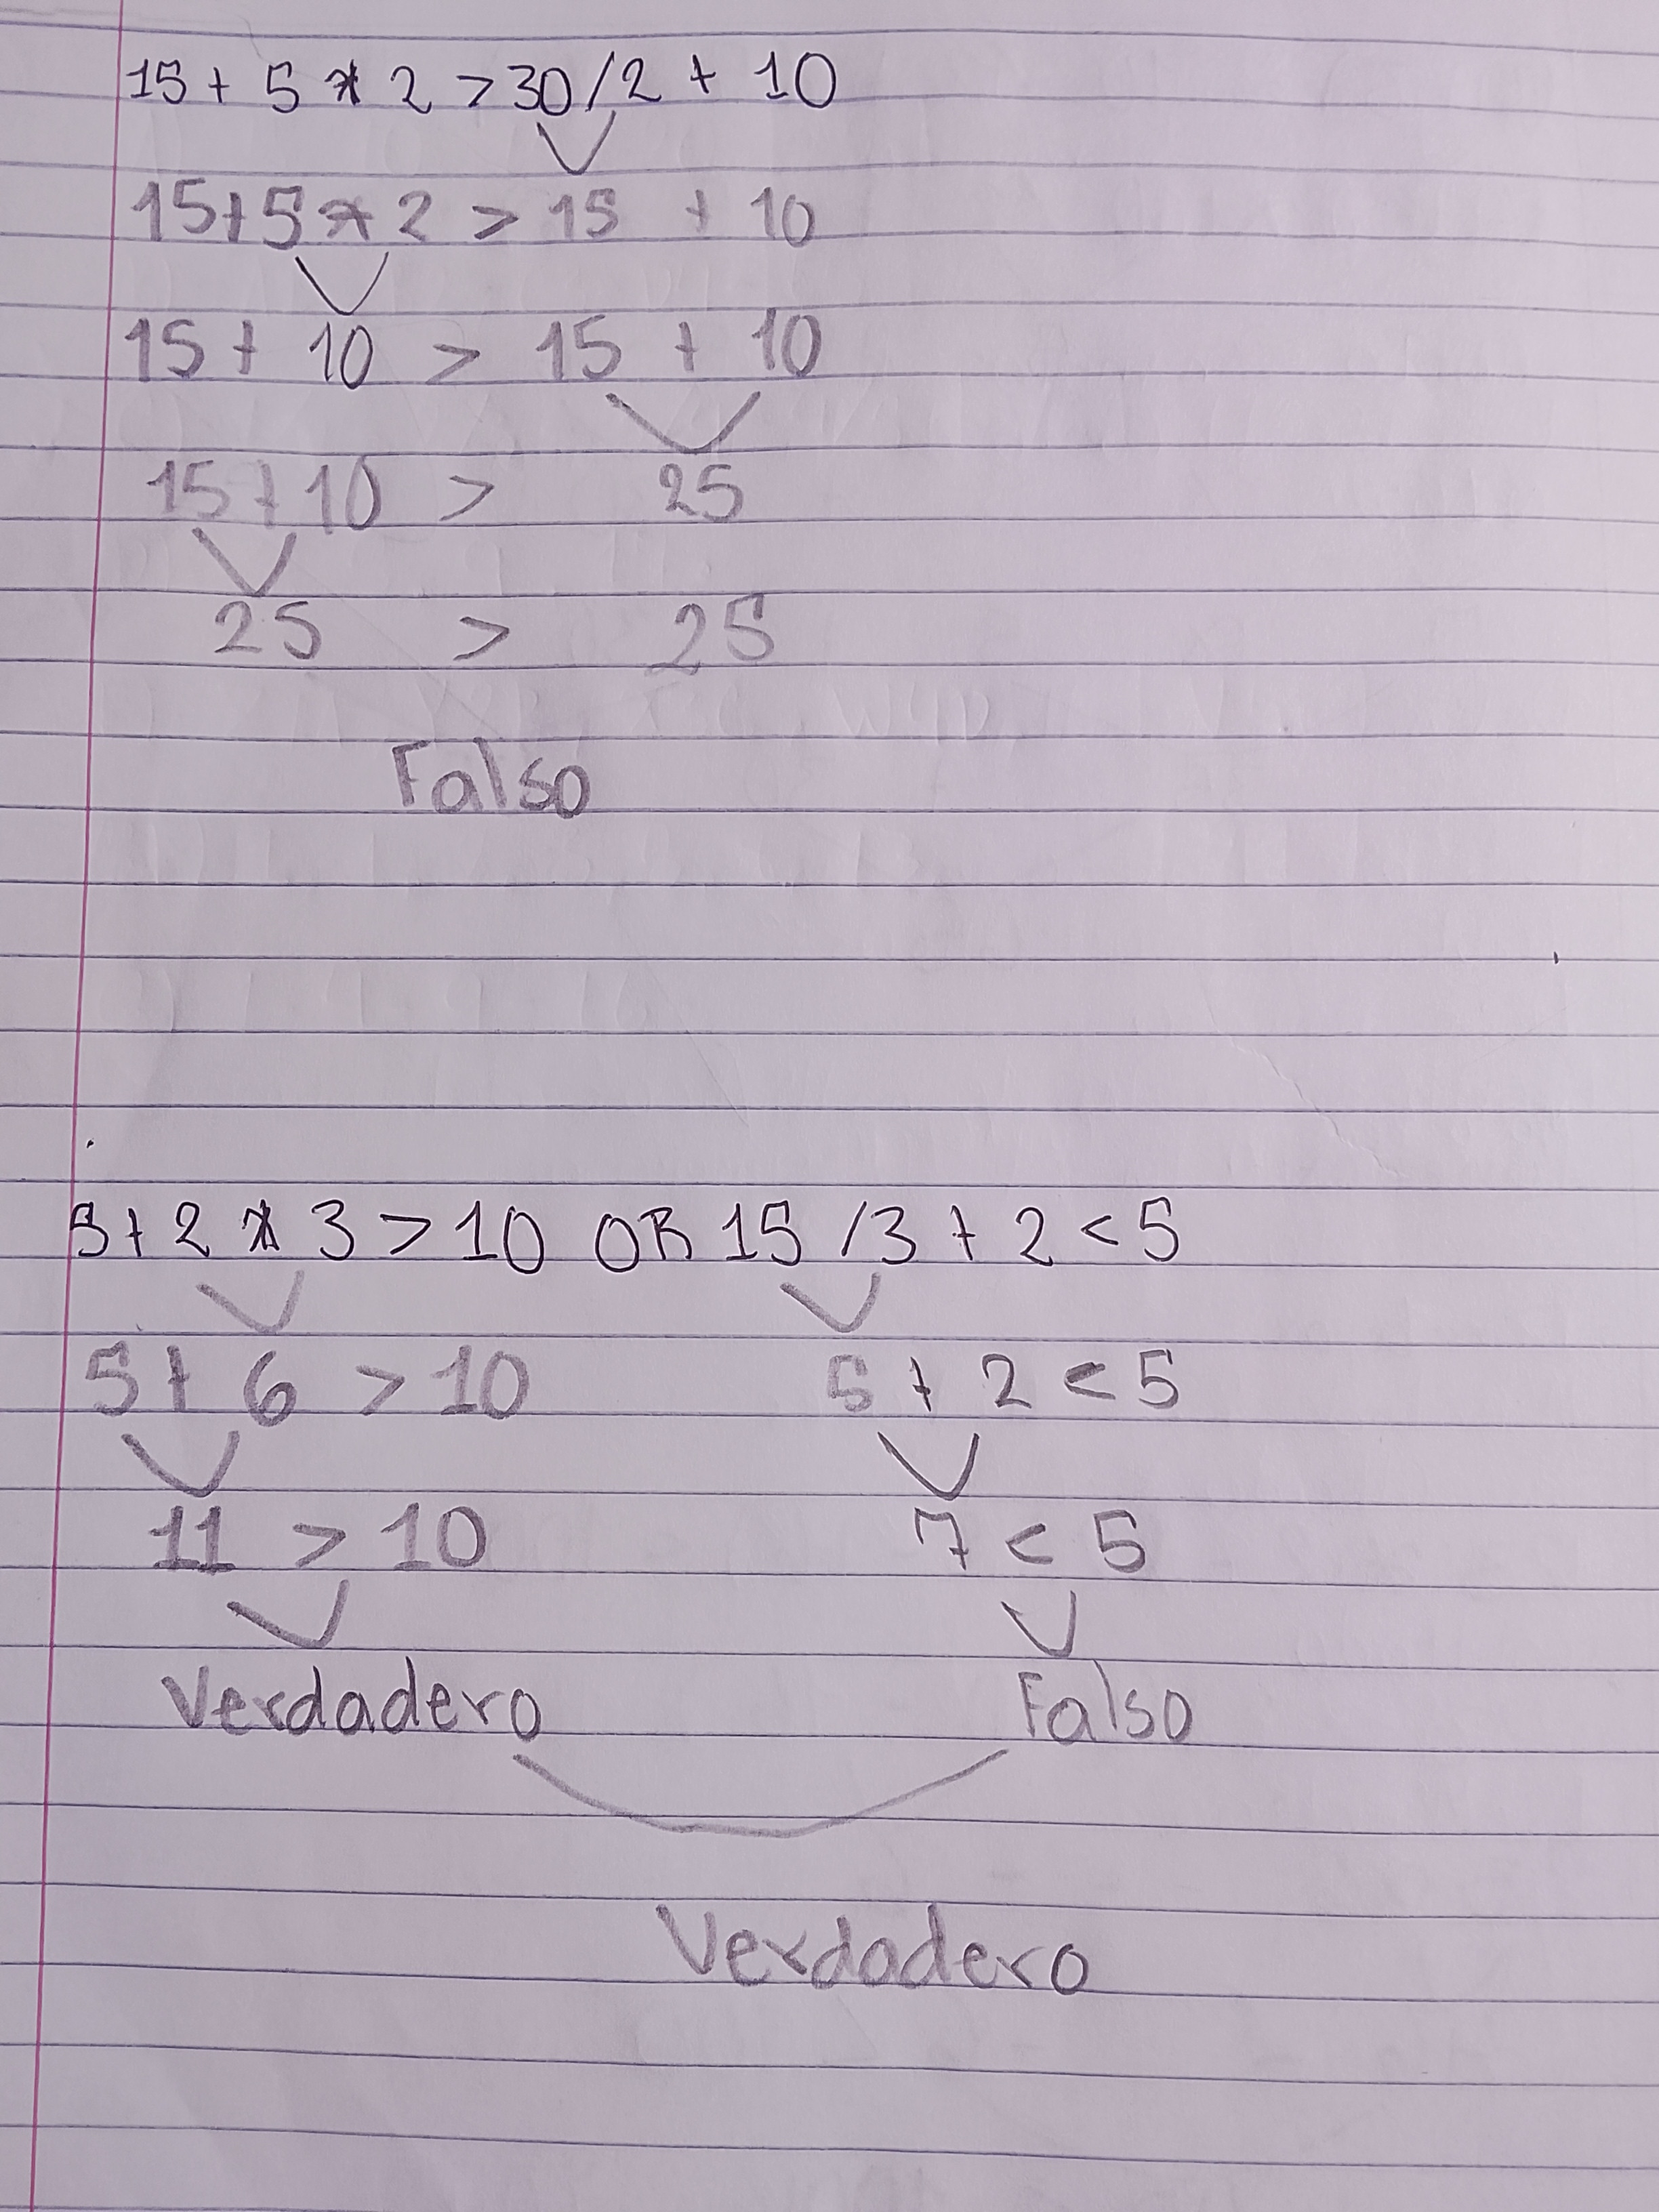 15 + 5 * 2 > 30 / 2 + 10
15 + 5 * 2 > 15 + 10
15 + 10 > 15 + 10
15 + 10 > 25
25 > 25
Falso
5 + 2 * 3 > 10 OR 15 / 3 + 2 < 5
5 + 6 > 10 5 + 2 < 5
11 > 10 7 < 5
Verdadero Falso
Verdadero